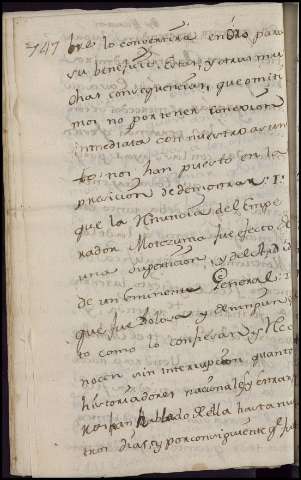 747
bre lo convertira en Oro para
su beneficio. Estas, y otras mu
chas consequencias, que omiti
mos no por tener conexion
inmediata con nuestro asun
to nos han puesto en la
precision de demostrar. 1.
que la Renuncia del Empe
rador Motezuma fue efecto de
una supeticion, y de
de un eminente General: 2.
que fue dolosa y de ningun
to como lo confiesan, y Reco
nocen sin interrupcion quantos
historiadores nacionales, y estran
han hablado de ella hasta nu
tros dias, y por consiguiente q.e